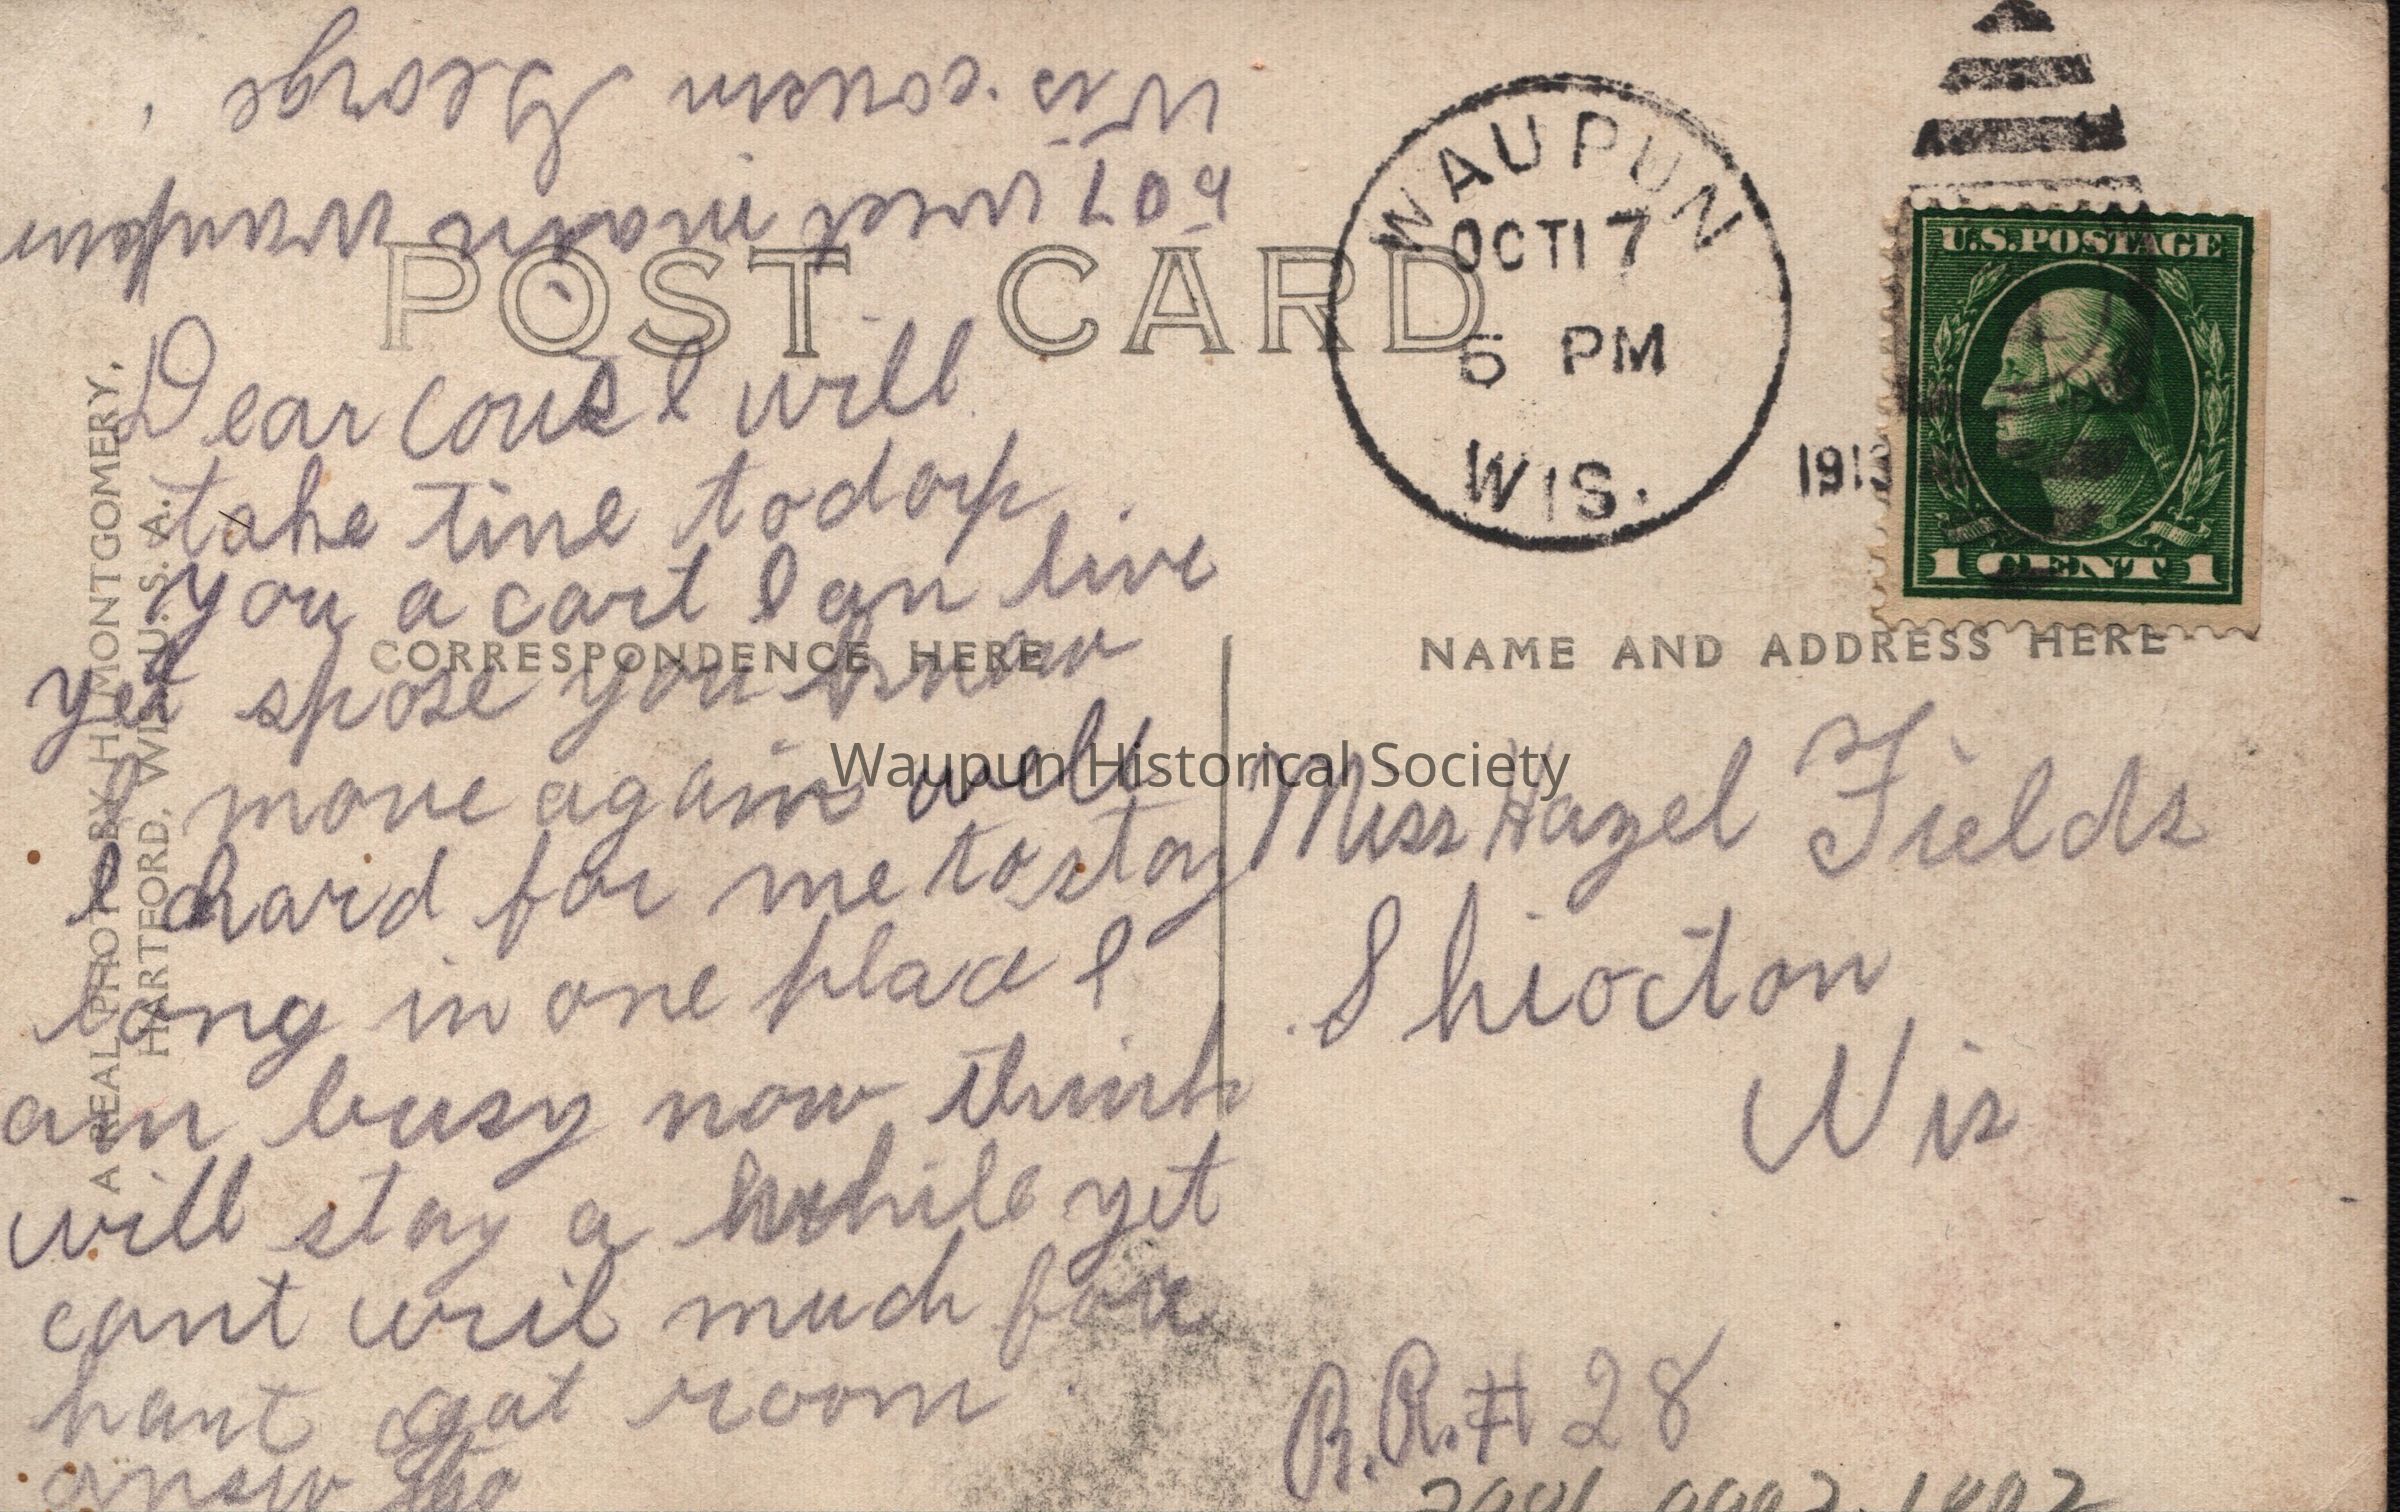 Dear cous I will
take tine to dop
you a cart I an live
yet spose you know
I move again well
I hard for me to stay
long in one place I
am busy now think
will stay a while yet
cant wril much for
hant got room
answ to
407 west main waupun
Wis. cousin George
POST CARD
CORRESPONDENCE HERE
NAME AND ADDRESS HERE
A REAL PHOTO BY H.L. MONTGOMERY,
HARTFORD, WIS., U.S.A.
WAUPUN
OCT 17
5 PM
WIS.
U.S. POSTAGE
1 CENT 1
Waupun Historical Society
Miss Hazel Fields
Shiocton
Wis
R.R.# 28